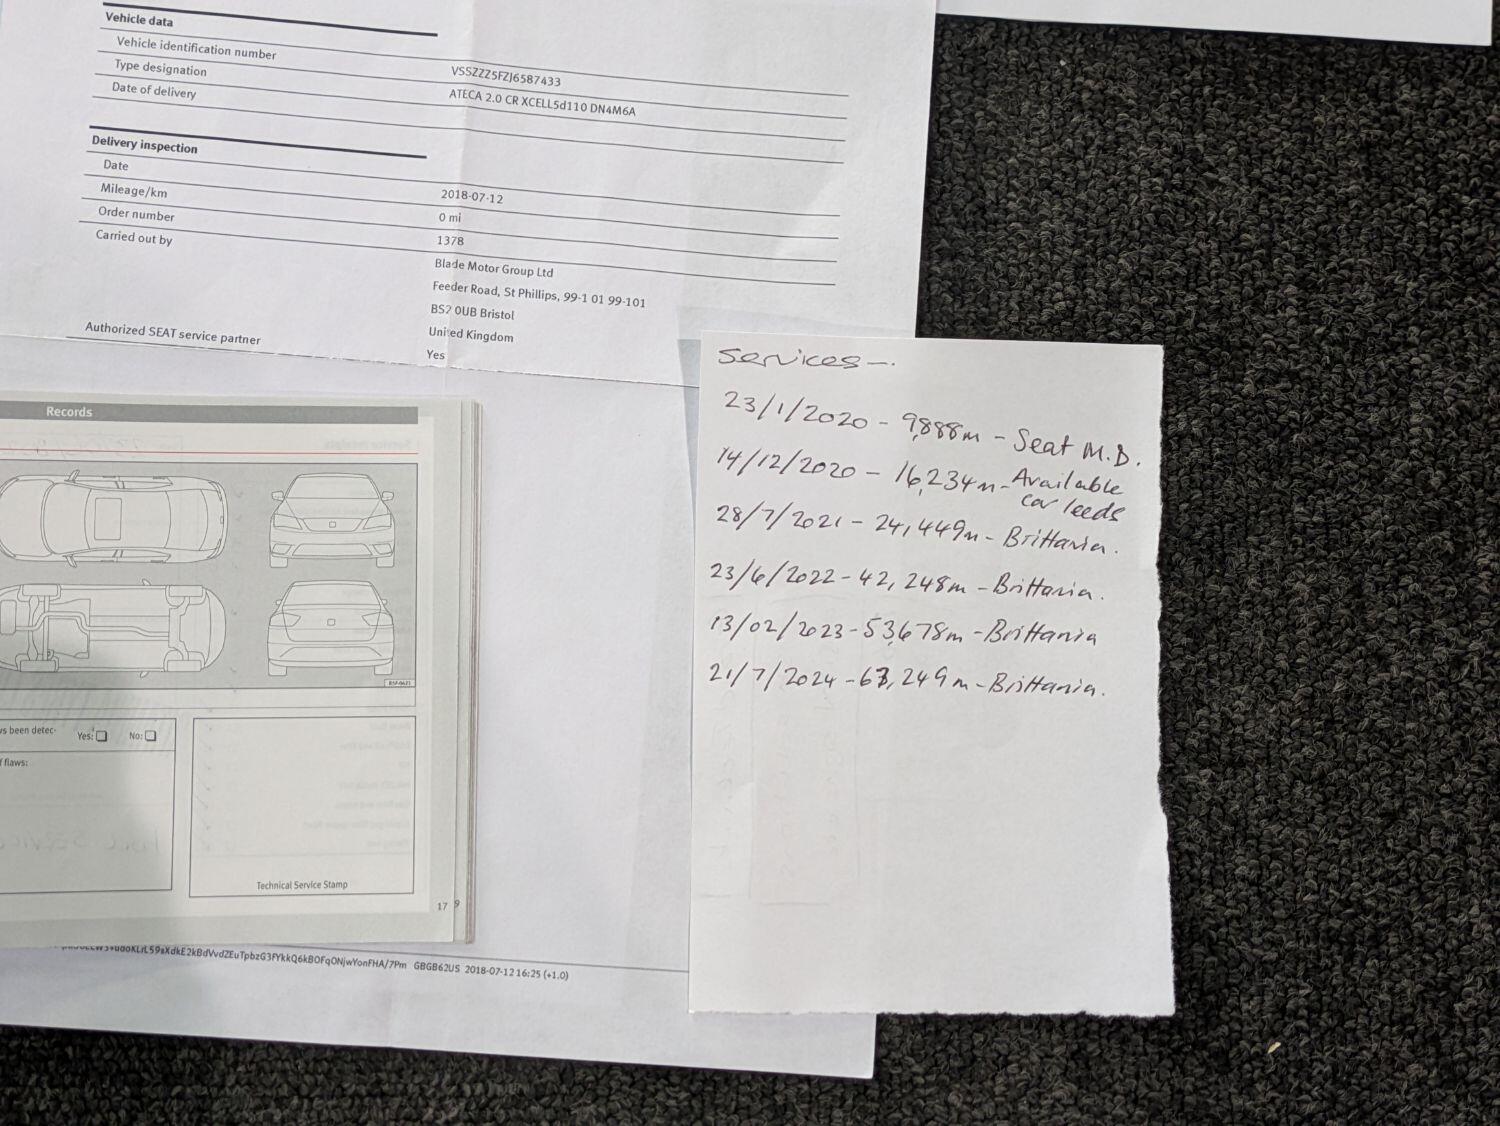 Vehicle data
Vehicle identification number
VSSZZZ5FZJ6587433
Type designation
ATECA 2.0 CR XCELL5d110 DN4M6A
Date of delivery
Delivery inspection
Date
2018-07-12
Mileage/km
0 mi
Order number
1378
Carried out by
Blade Motor Group Ltd
Feeder Road, St Phillips, 99-1 01 99-101
BS2 0UB Bristol
United Kingdom
Authorized SEAT service partner
Yes
Records
Yes:
No:
f flaws:
Technical Service Stamp
17
9
GBGB62US 2018-07-12 16:25 (+1.0)
Services -.
23/1/2020 - 9,888m - Seat M.B.
14/12/2020 - 16,234m - Available
car leeds
28/7/2021 - 24,449m - Brittania.
23/6/2022 - 42,248m - Brittania.
13/02/2023 - 53,678m - Brittania
21/7/2024 - 63,249m - Brittania.